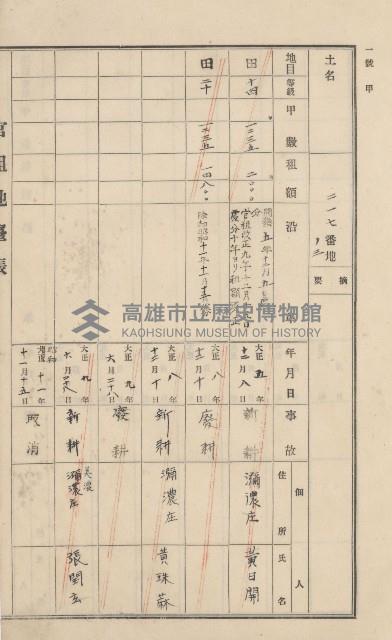 一號甲
土名
二一七番地ノ三
摘要
地目 等級 甲數 租額 沿革
田 十四 一二三五 二〇〇〇
田 二十 一二三五 一四八〇
年月日 事故 個人 住所 氏名
大正五年十二月八日 新耕 瀰濃庄 黃日開
大正八年十二月十日 廢耕
大正八年十二月十日 新耕 瀰濃庄 黃珠蘇
大正九年六月二十八日 廢耕
大正九年六月二十八日 新耕 美濃 瀰濃庄
昭和十一年十一月十五日 取消
官租地臺帳
高雄市立歷史博物館
KAOHSIUNG MUSEUM OF HISTORY